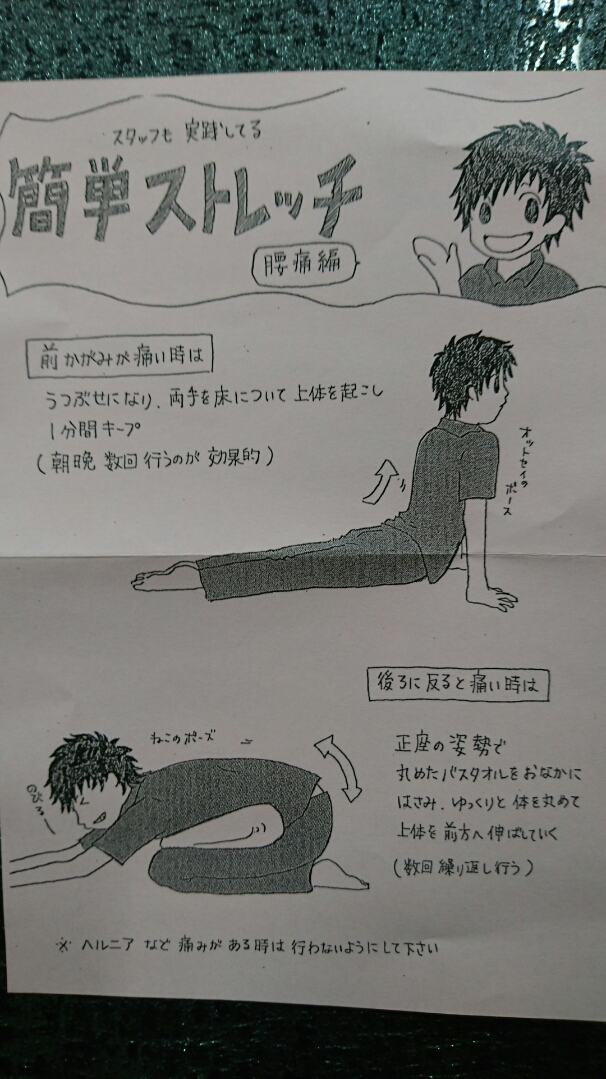 スタッフも 実践してる
簡単ストレッチ
腰痛編
前かがみが痛い時は
うつぶせになり、両手を床について 上体を起こし
1分間キープ
(朝晩 数回 行うのが 効果的)
オットセイの
ポーズ
後ろに反ると痛い時は
ねこのポーズ
のびろー
正座の姿勢で
丸めたバスタオルをおなかに
はさみ、ゆっくりと 体を丸めて
上体を 前方へ 伸ばしていく
(数回 繰り返し行う)
※ ヘルニア など 痛みが ある時は 行わないようにして下さい